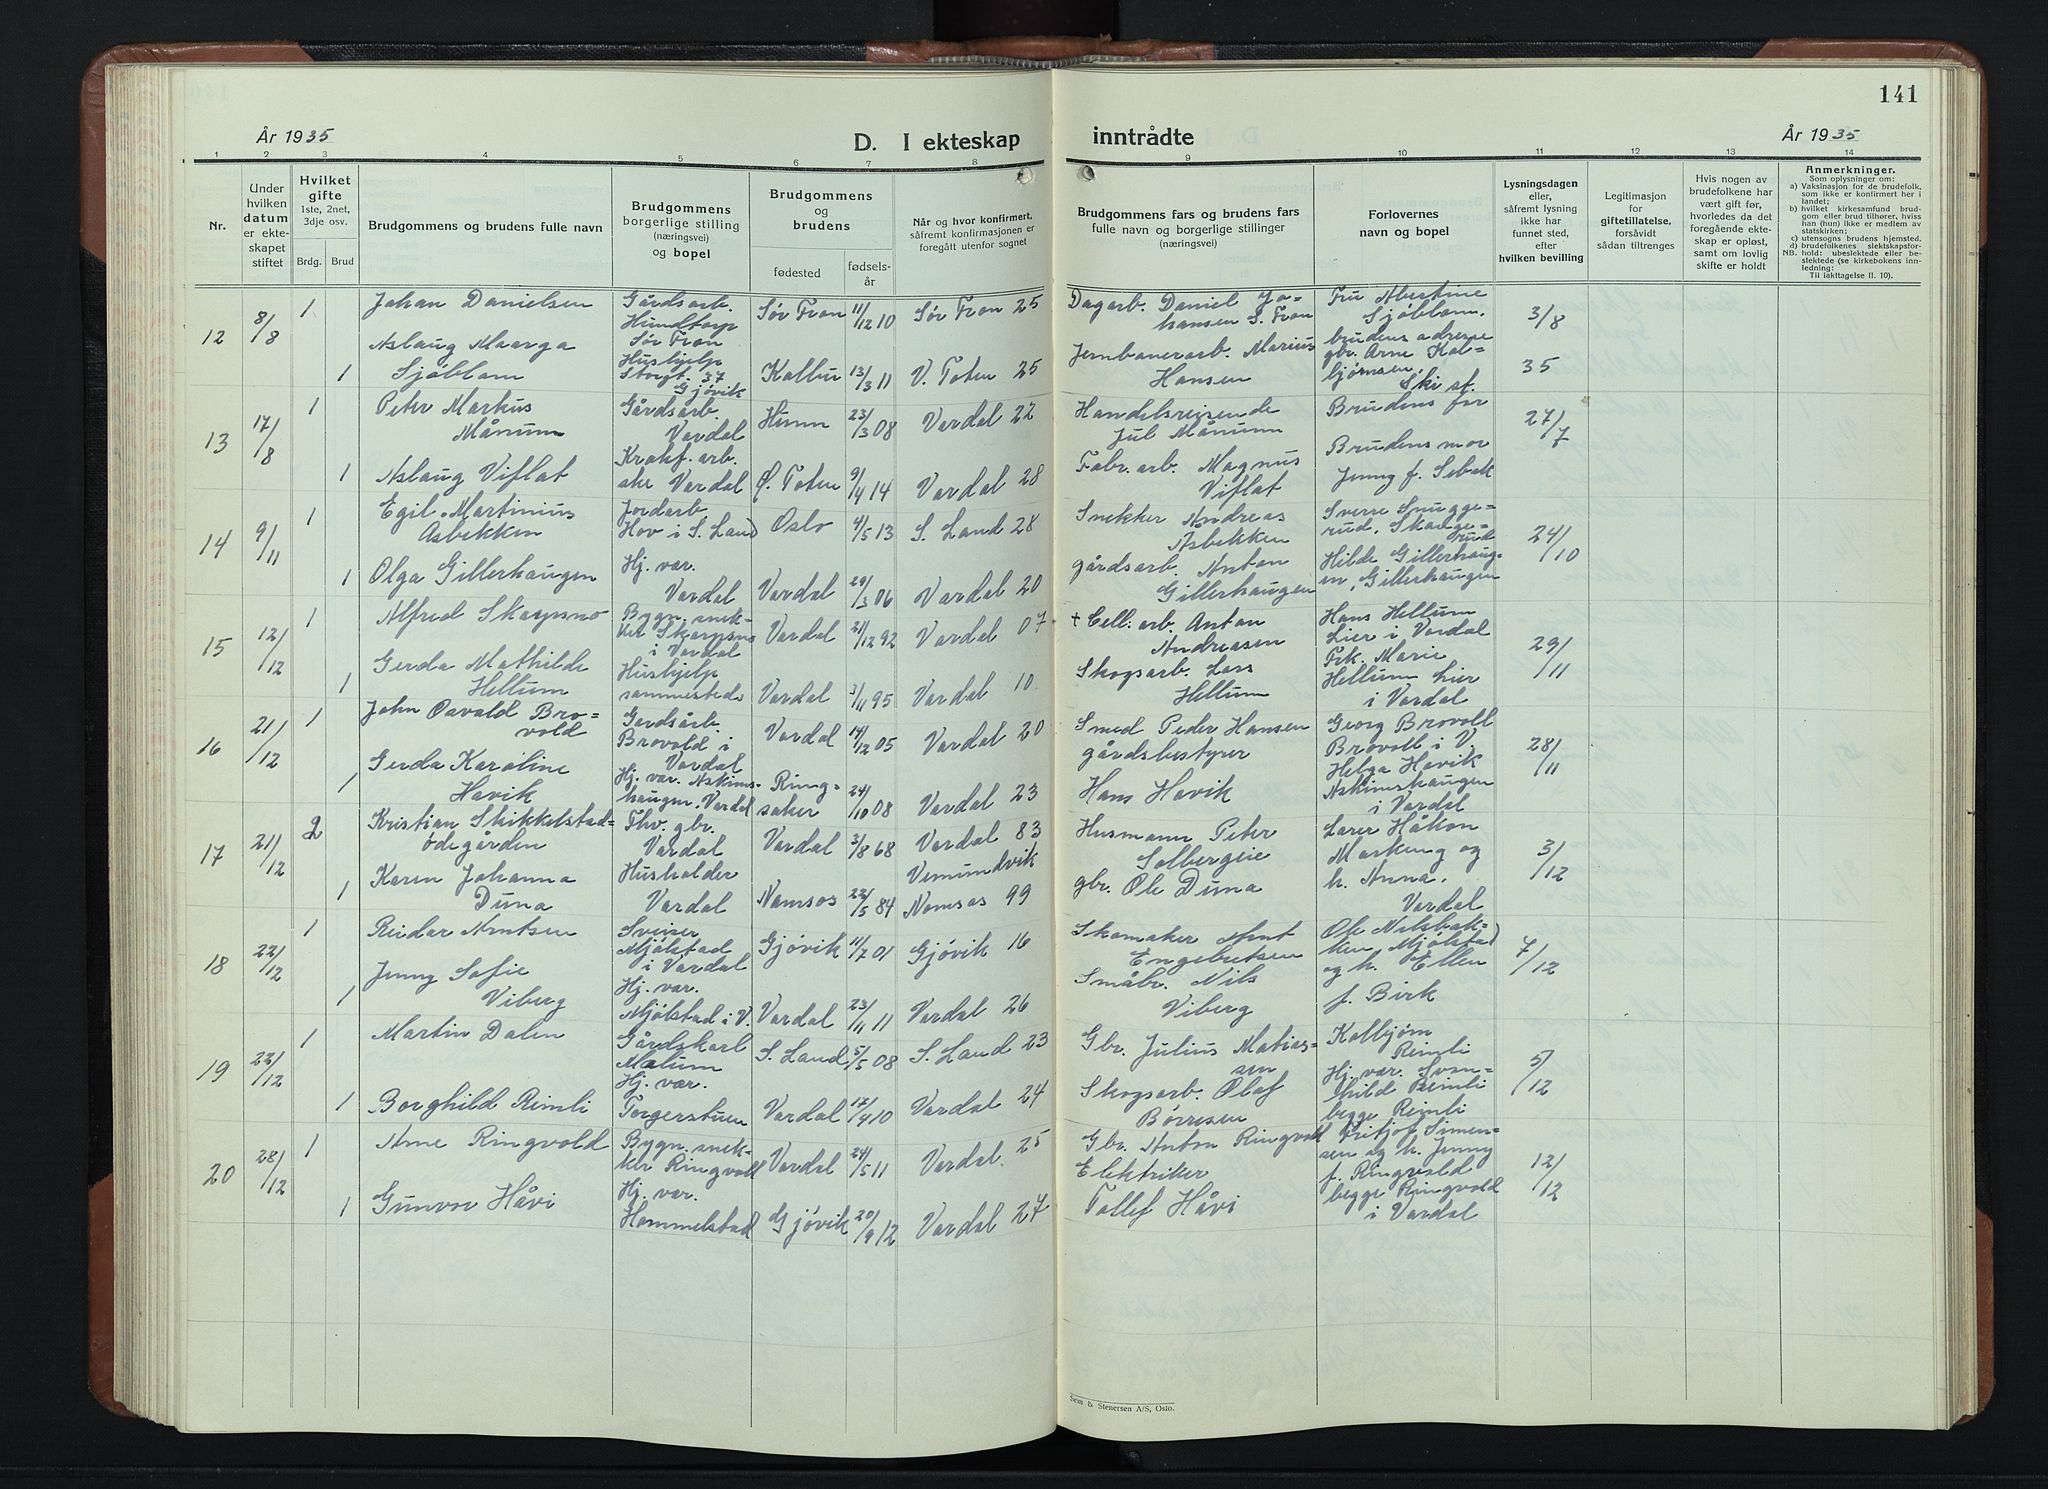 141
År 1935
D. I ekteskap inntrådte
År 1935
1 2 3 4 5 6 7 8 9 10 11 12 13 14
Nr.
Under hvilken datum er ekteskapet stiftet
Hvilket gifte 1ste, 2net, 3dje osv.
Brdg. Brud
Brudgommens og brudens fulle navn
Brudgommens borgerlige stilling (næringsvei) og bopel
Brudgommens og brudens
fødested
fødselsår
Når og hvor konfirmert, såfremt konfirmasjonen er foregått utenfor sognet
Brudgommens fars og brudens fars fulle navn og borgerlige stillinger (næringsvei)
Forlovernes navn og bopel
Lysningsdagen eller, såfremt lysning ikke har funnet sted, efter hvilken bevilling
Legitimasjon for giftetillatelse, forsåvidt sådan tiltrenges
Hvis nogen av brudefolkene har vært gift før, hvorledes da det foregående ekteskap er opløst, samt om lovlig skifte er holdt
Anmerkninger.
Som oplysninger om:
a) Vaksinasjon for de brudefolk, som ikke er konfirmert her i landet;
b) hvilket kirkesamfund brudgom eller brud tilhører, hviss han (hun) ikke er medlem av statskirken;
c) utensogns brudens hjemsted.
d) brudefolkenes slektskapsforhold: ubeslektede eller beslektede (se kirkebokens innledning:
NB.
Til iakttagelse II. 10).
12 8/8 1 Johan Danielsen Gårdsarb. Hundtorp Sør Fron Sør Fron 11/12 10 Sør Fron 25 Dagarb. Daniel Johansen S. Fron Fru Albertine Sjøblom, brudens adresse 3/8
1 Aslaug Maarga Sjøblom Hushjelp Storgt. 37 Gjøvik Kolbu 13/3 11 V. Toten 25 Jernbanearb. Marius Hansen gbr. Arne Kolbjørnsen, Ski st. 35
13 17/8 1 Peter Markus Månum Gårdsarb. Vardal Hunn 23/3 08 Vardal 22 Handelsreisende Jul Månum Brudens far 27/7
1 Aslaug Viflat Krokf. arb. ske Vardal Ø. Toten 9/4 14 Vardal 28 Fabr. arb. Magnus Viflat Brudens mor Jenny f. Sebak
14 9/11 1 Egil Martinius Asbekken Jordarb. Hov i S. Land Oslo 4/5 13 S. Land 28 Snekker Andreas Asbekken Sverre Snuggerud, Skougerud 24/10
1 Olga Gillerhaugen Hj. var. Vardal Vardal 29/3 06 Vardal 20 gårdsarb. Anton Gillerhaugen Hilde Gillerhaugen, Gillerhaugen
15 12/12 1 Alfred Skarpsno Bygn. snekker Skarpsno i Vardal Vardal 21/12 92 Vardal 07 + Cell. arb. Anton Andreasen Hans Hellum Lier i Vardal 29/11
1 Gerda Mathilde Hellum Hushjelp sammesteds Vardal 3/11 95 Vardal 10. Skogsarb. Lars Hellum Frk. Marie Hellum Lier i Vardal
16 21/12 1 John Osvald Brovold Gardsårb. Brovold i Vardal Vardal 14/12 05 Vardal 20 Smed Peder Hansen Georg Brovoll Brovoll i V. 28/11
1 Gerda Karoline Havik Hj. var. Askimshaugen, Vardal Ringsaker 24/10 08 Vardal 23 gårdsbestyrer Hans Havik Helga Havik Askimshaugen i Vardal
17 21/12 2 Kristian Skikkelstadødegården Fhv. gbr. Vardal Vardal 3/8 68 Vardal 83 Husmann Peter Solbergeie Lærer Håkon Markeng og h. Anna, Vardal 3/12
1 Karen Johanna Duna Husholder Vardal Namsos 22/5 84 Vemundvik Namsos 99 gbr. Ole Duna
18 22/12 1 Reidar Arntsen Sveiser Mjølstad i Vardal Gjøvik 11/7 01 Gjøvik 16 Skomaker Arnt Engebretsen Ole Nilsbakken Mjølstad og h. Ellen f. Birk 7/12
1 Jenny Sofie Viberg Hj. var. Mjølstad i V. Vardal 23/11 11 Vardal 26 Småbr. Nils Viberg
19 22/12 1 Martin Dalen Gårdskarl Matum S. Land 5/5 08 S. Land 23 Gbr. Julius Matiassen Kolbjørn Rimli 5/12
1 Borghild Rimli Hj. var. Torgerstuen Vardal 17/4 10 Vardal 24 Skogsarb. Olaf Børresen Hj. var. Svanhild Rimli begge Rimli
20 28/12 1 Arne Ringvold Bygn. snekker Ringvoll Vardal 24/5 11 Vardal. 25 Gbr. Anton Ringvold Fritjof Simensen og h. Jenny f. Ringvold begge Ringvold i Vardal 12/12
1 Gunvor Håvi Hj. var. Hammelstad Gjøvik 20/9 12 Vardal 27 Elektriker Tollef Håvi
Sem & Stenersen A/S, Oslo.